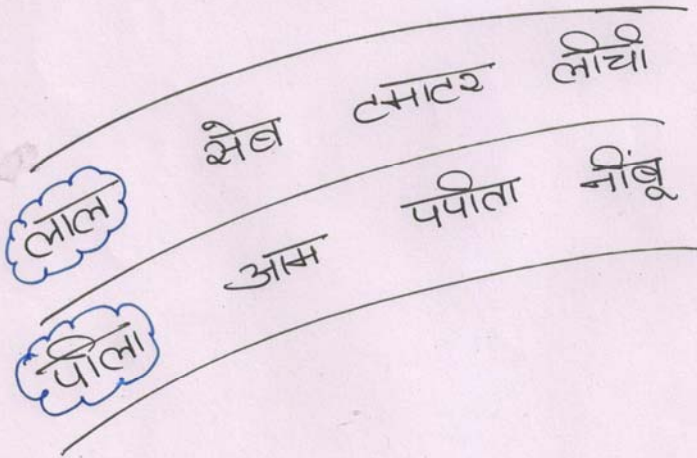 लाल सेब टमाटर लीची
पीला आम पपीता नींबू